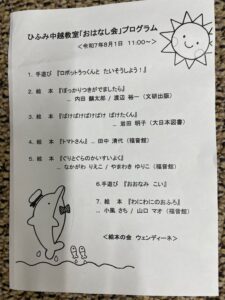 ひふみ中越教室「おはなし会」プログラム
<令和7年8月1日 11:00～>
1. 手遊び 『ロボットうっくんと たいそうしよう!』
2. 絵 本 『ぽっかりつきがでましたら』
… 内田 麟太郎 / 渡辺 裕一(文研出版)
3. 絵 本 『ばけばけばけばけ ばけたくん』
… 岩田 明子(大日本図書)
4. 絵 本 『トマトさん』 … 田中 清代(福音館)
5. 絵 本 『ぐりとぐらのかいすいよく』
… なかがわ りえこ / やまわき ゆりこ(福音館)
6. 手遊び 『おおなみ こい』
7. 絵 本 『わにわにのおふろ』
… 小風 さち / 山口 マオ(福音館)
<絵本の会 ウェンディーネ>